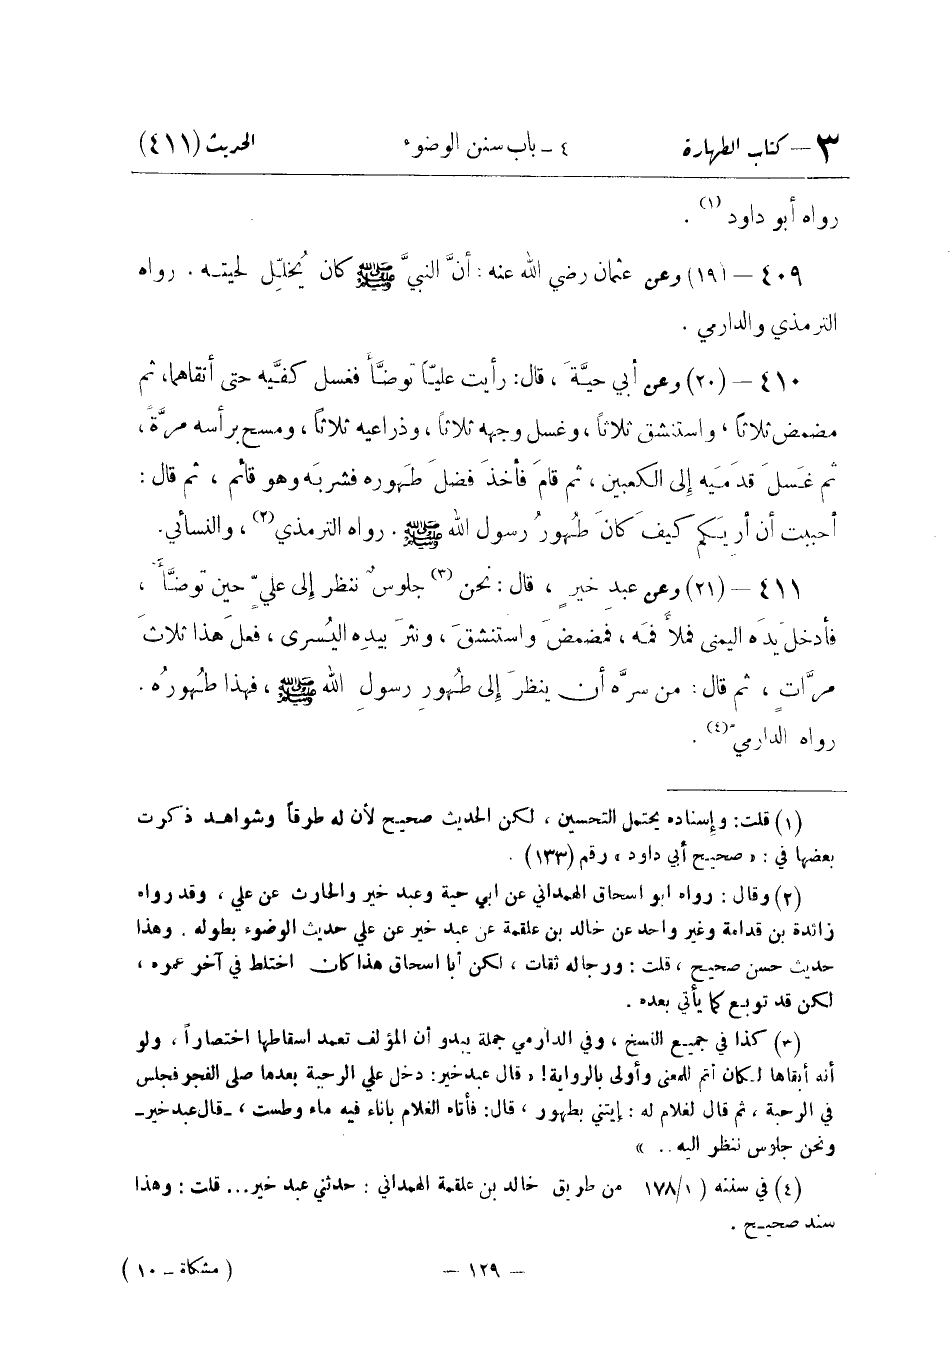 ٣ – كتاب الطهارة ٤ – باب سنن الوضوء الحديث (٤١١)
رواه أبو داود (١) .
٤٠٩ – (١٩) وعن عثمان رضي الله عنه : أنَّ النبيَّ ﷺ كان يُخلِّل لحيته . رواه
الترمذي والدارمي .
٤١٠ – (٢٠) وعن أبي حيَّةَ ، قال: رأيت عليّاً توضَّأَ فغسل كفَّيه حتى أنقاهما، ثم
مضمض ثلاثاً ، واستنشق ثلاثاً ، وغسل وجهه ثلاثاً ، وذراعيه ثلاثاً ، ومسح برأسه مرَّةً ،
ثم غَسلَ قدمَيه إلى الكعبين ، ثم قامَ فأخذَ فضلَ طَهوره فشربَه وهو قائم ، ثم قال :
أحببت أن أريَكم كيفَ كانَ طُهورُ رسول الله ﷺ . رواه الترمذي(٢) ، والنسائي.
٤١١ – (٢١) وعن عبد خيرٍ ، قال : نحن (٣) جلوسٌ ننظر إلى عليٍّ حين توضَّأَ ،
فأدخل يدَه اليمنى فملأَ فمَه ، فمضمضَ واستنشقَ ، ونثرَ بيدِه اليُسرى ، فعلَ هذا ثلاثَ
مرَّاتٍ ، ثم قال : من سرَّه أن ينظرَ إلى طُهورِ رسولِ الله ﷺ ، فهذا طُهورُه .
رواه الدارميّ(٤) .
(١) قلت: وإسناده يحتمل التحسين ، لكن الحديث صحيح لأن له طرقاً وشواهد ذكرت
بعضها في : « صحيح أبي داود » رقم (١٣٣) .
(٢) وقال : رواه ابو اسحاق الهمداني عن ابي حية وعبد خير والحارث عن علي ، وقد رواه
زائدة بن قدامة وغير واحد عن خالد بن علقمة عن عبد خير عن علي حديث الوضوء بطوله . وهذا
حديث حسن صحيح ، قلت : ورجاله ثقات ، لكن أبا اسحاق هذا كان اختلط في آخر عمره ،
لكن قد توبع كما يأتي بعده .
(٣) كذا في جميع النسخ ، وفي الدارمي جملة يبدو أن المؤلف تعمد اسقاطها اختصاراً ، ولو
أنه أبقاها لكان أتم للمعنى وأولى بالرواية! « قال عبد خير: دخل علي الرحبة بعدما صلى الفجر فجلس
في الرحبة ، ثم قال لغلام له : إيتني بطهور ، قال: فأتاه الغلام باناء فيه ماء وطست ، ـقال عبد خيرـ
ونحن جلوس ننظر اليه . . »
(٤) في سننه ( ١/١٧٨ من طريق خالد بن علقمة الهمداني : حدثني عبد خير... قلت : وهذا
سند صحيح .
– ١٢٩ – ( مشكاة – ١٠ )